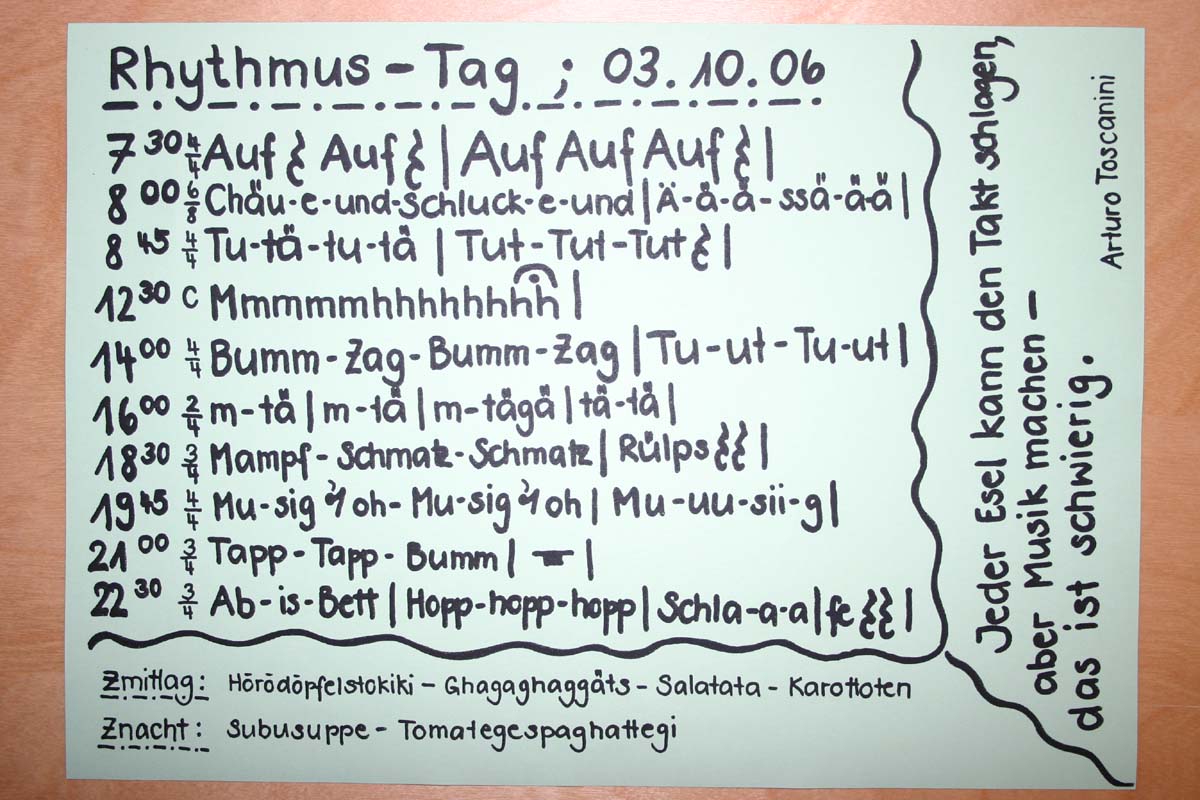 Rhythmus - Tag ; 03.10.06
7 30 4/4 Auf 𝄽 Auf 𝄽 | Auf Auf Auf 𝄽 |
8 00 6/8 Chäu-e-und-Schluck-e-und | Ä-ä-ä-ssä-ä-ä |
8 45 4/4 Tu-tä-tu-tä | Tut-Tut-Tut 𝄽 |
12 30 C Mmmmmmhhhhhhhhh |
14 00 4/4 Bumm-Zag-Bumm-Zag | Tu-ut-Tu-ut |
16 00 2/4 m-tä | m-tä | m-tägä | tä-tä |
18 30 3/4 Mampf-Schmatz-Schmatz | Rülps 𝄽 𝄽 |
19 45 4/4 Mu-sig 𝄾 oh-Mu-sig 𝄾 oh | Mu-uu-sii-g |
21 00 3/4 Tapp-Tapp-Bumm | 𝄻 |
22 30 3/4 Ab-is-Bett | Hopp-hopp-hopp | Schla-a-a | fe 𝄽 𝄽 |
Zmittag: Hörödöpfelstokiki - Ghagaghaggäts - Salatata - Karottoten
Znacht: Subusuppe - Tomategespaghattegi
Jeder Esel kann den Takt schlagen,
aber Musik machen –
das ist schwierig.
Arturo Toscanini